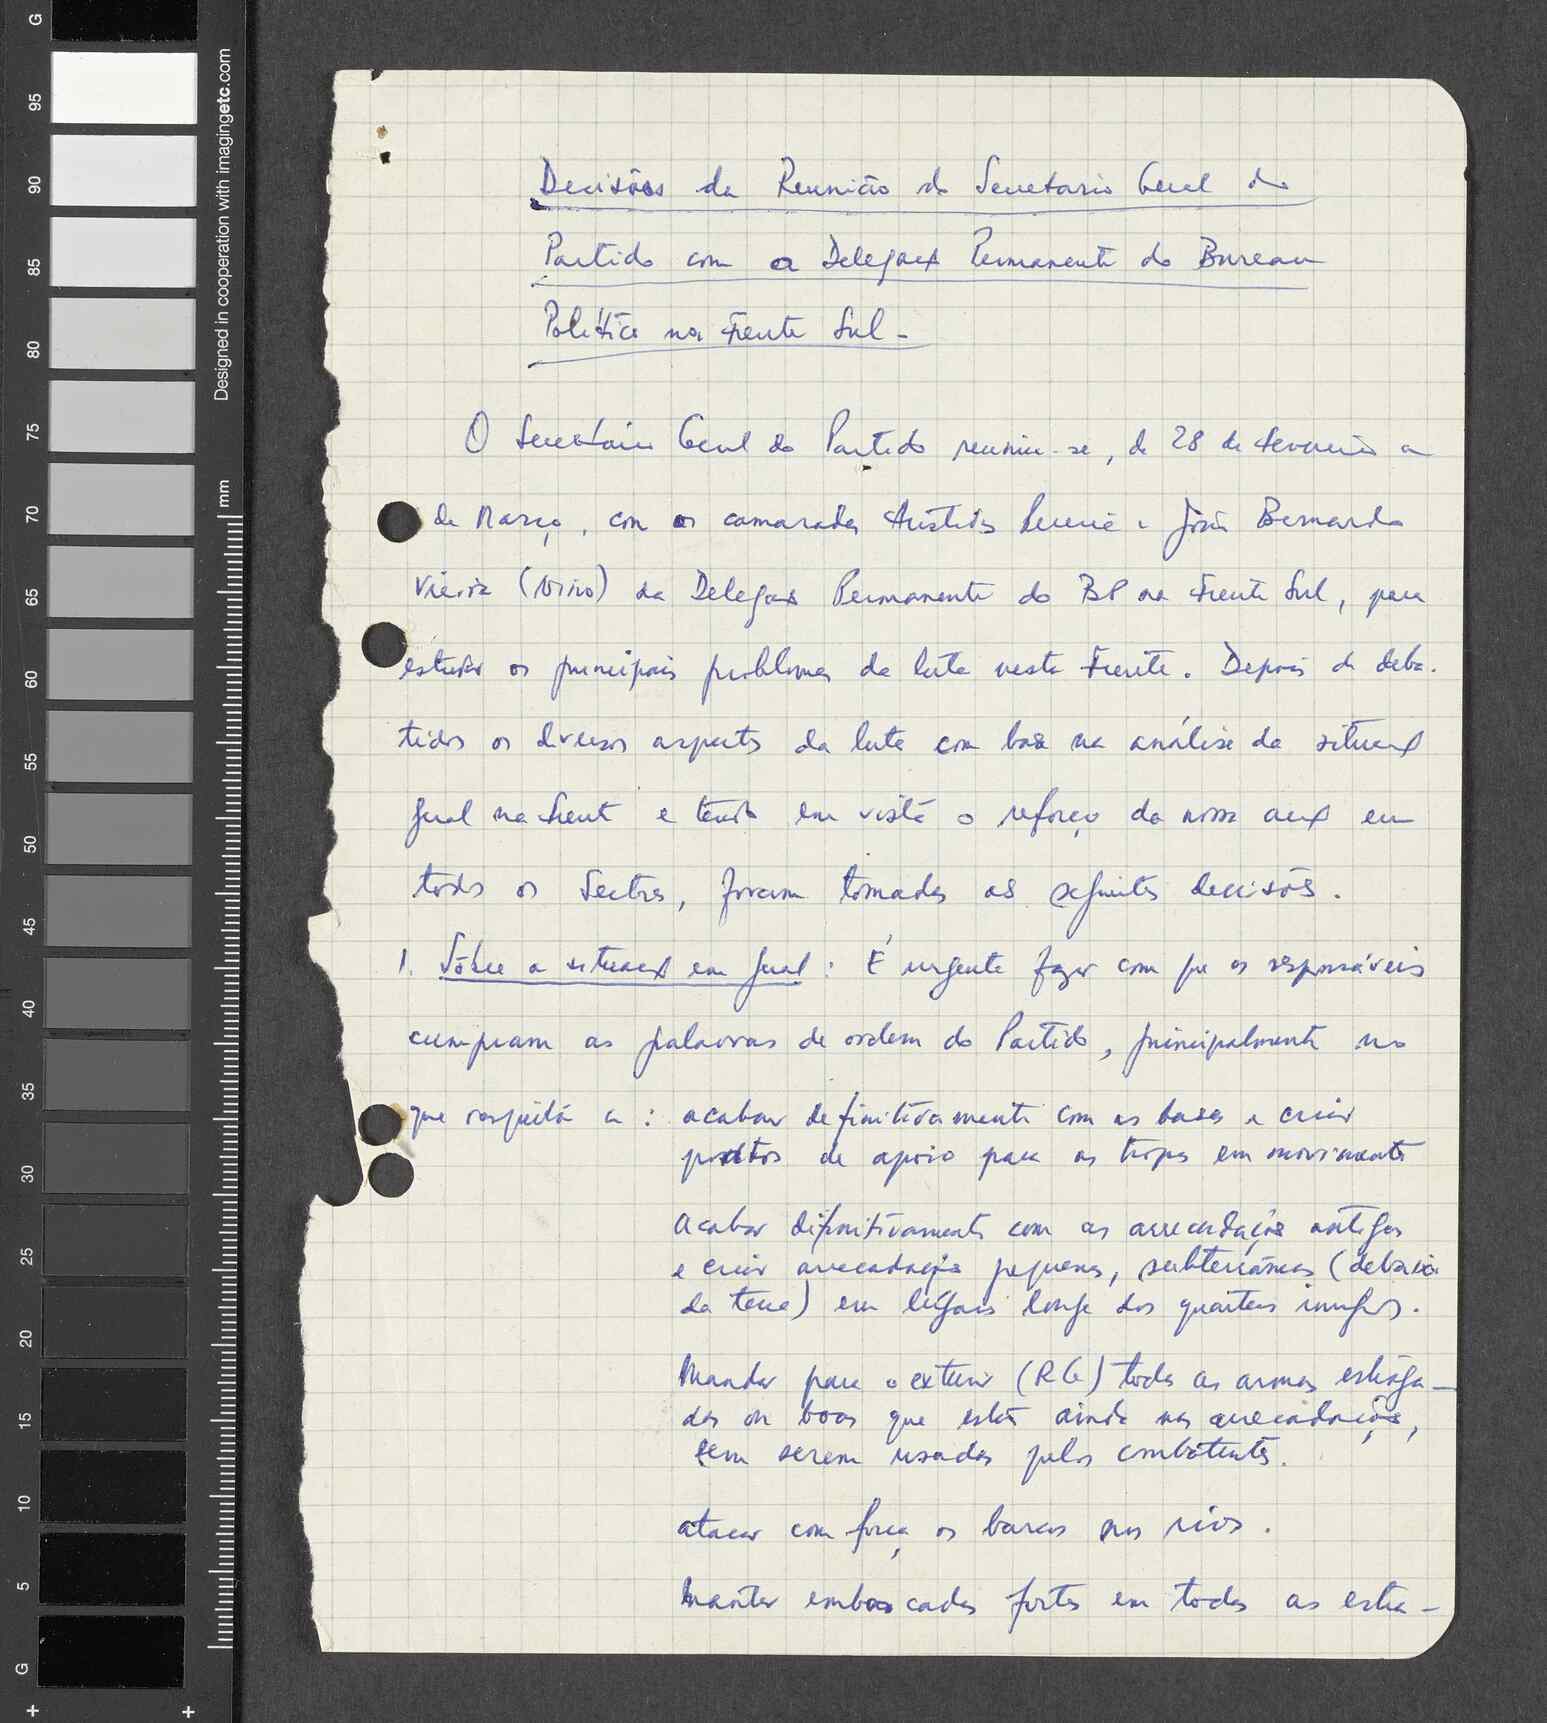 Decisões da Reunião do Secretario Geral do
Partido com a Delegaç Permanente do Bureau
Político na Frente Sul -
O Secretário Geral do Partido reuniu-se, de 28 de Fevereiro a
de Março, com os camaradas Aristides Pereira e João Bernardo
Vieira (Nino) da Delegaç Permanente do BP na Frente Sul, para
estudar os principais problemas da luta nesta Frente. Depois de deba-
tidos os diversos aspects da luta com base na análise da situaç
geral na Frente e tendo em vista o reforço da nossa acç em
todos os Sectres, foram tomadas as seguintes decisões.
1. Sôbre a situaç em geral : É urgente fazer com que os responsáveis
cumpram as palavras de ordem do Partido, principalmente no
que respeita a : acabar definitivamente com as bases e criar
pontos de apoio para as tropas em movimento
acabar difinitivamente com as arrecadações antigas
e criar arrecadações pequenas, subterrâneas (debaixo
da terra) em lugares longe dos quarteis inimigos.
Mandar para o exterior (RG) todas as armas estraga-
das ou boas que estão ainda nas arrecadações,
sem serem usadas pelos combatentes.
atacar com força os barcos nos rios.
Manter emboscadas fortes em todas as estra-
Designed in cooperation with imagingetc.com
mm
G
95
90
85
80
75
70
65
60
55
50
45
40
35
30
25
20
15
10
5
G